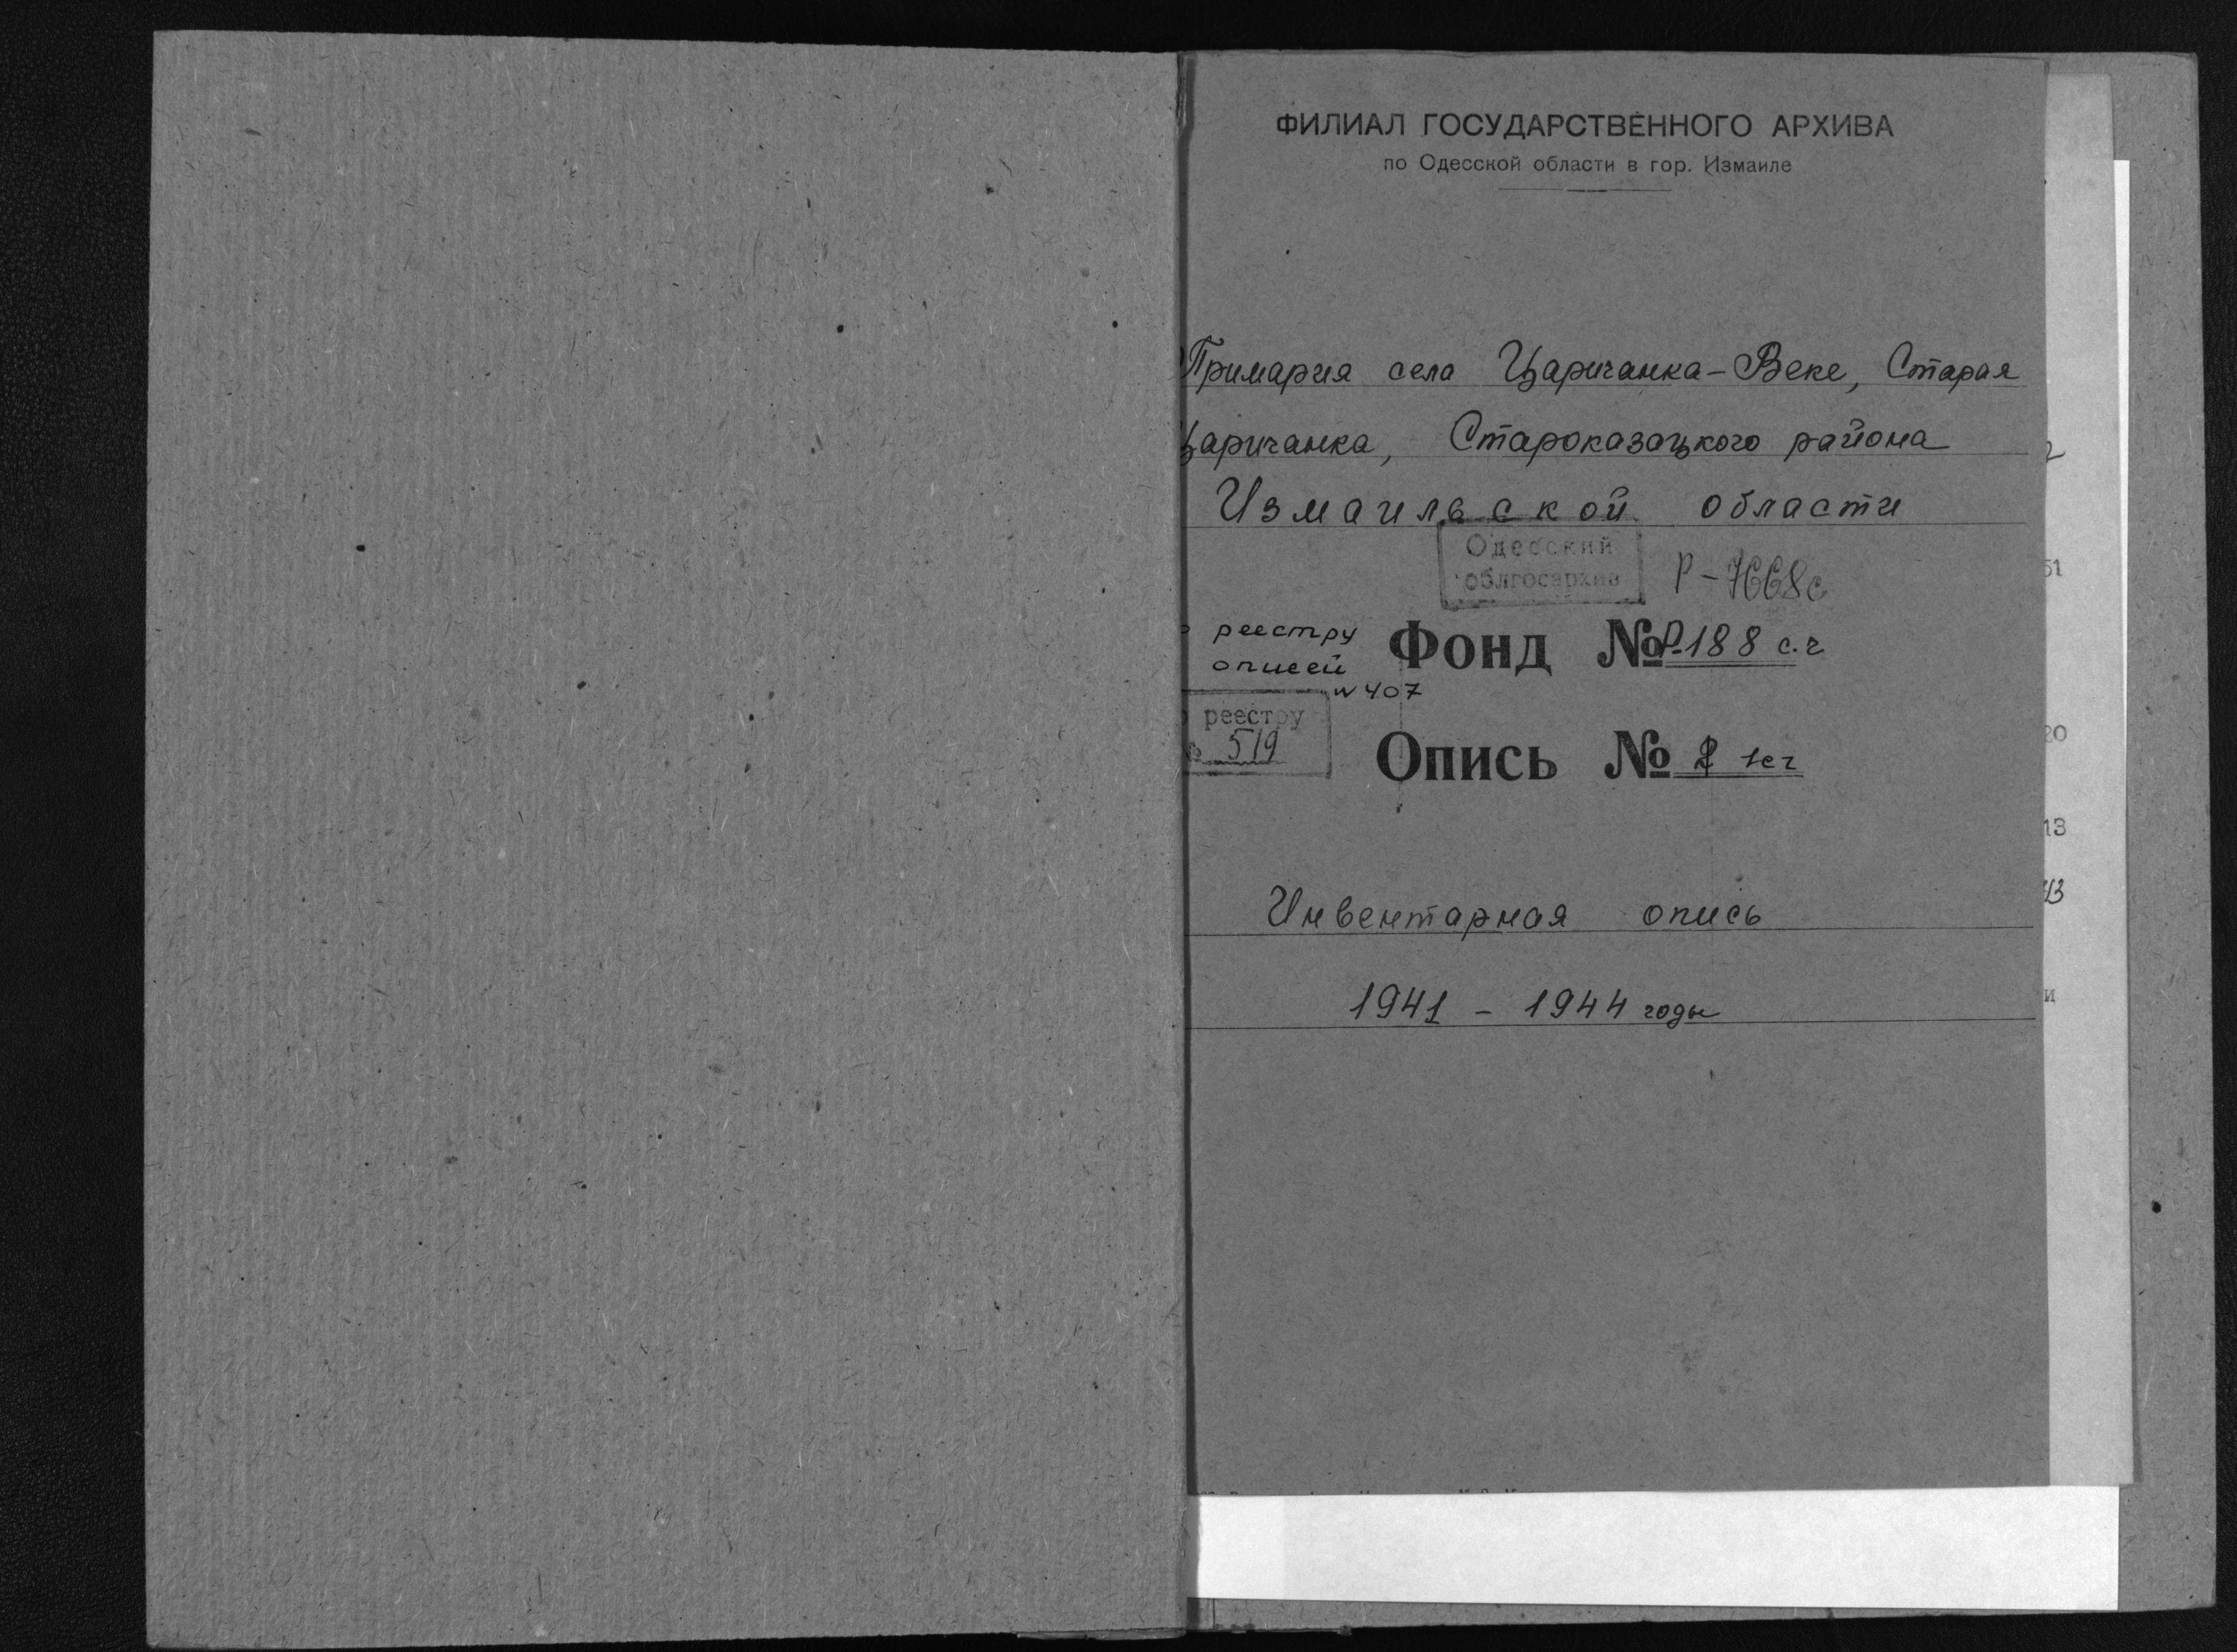 ФИЛИАЛ ГОСУДАРСТВЕННОГО АРХИВА
по Одесской области в гор. Измаиле
Примария села Царичанка-Веке, Старая
Царичанка, Староказацкого района
Измаильской области
Одесский
облгосархив
Р-7668с
реестру
описей
№ 407
Фонд № Р-188 с.ч
реестру
№ 519
Опись № 1сч
Инвентарная опись
1941 - 1944 годы
51
20
13
и